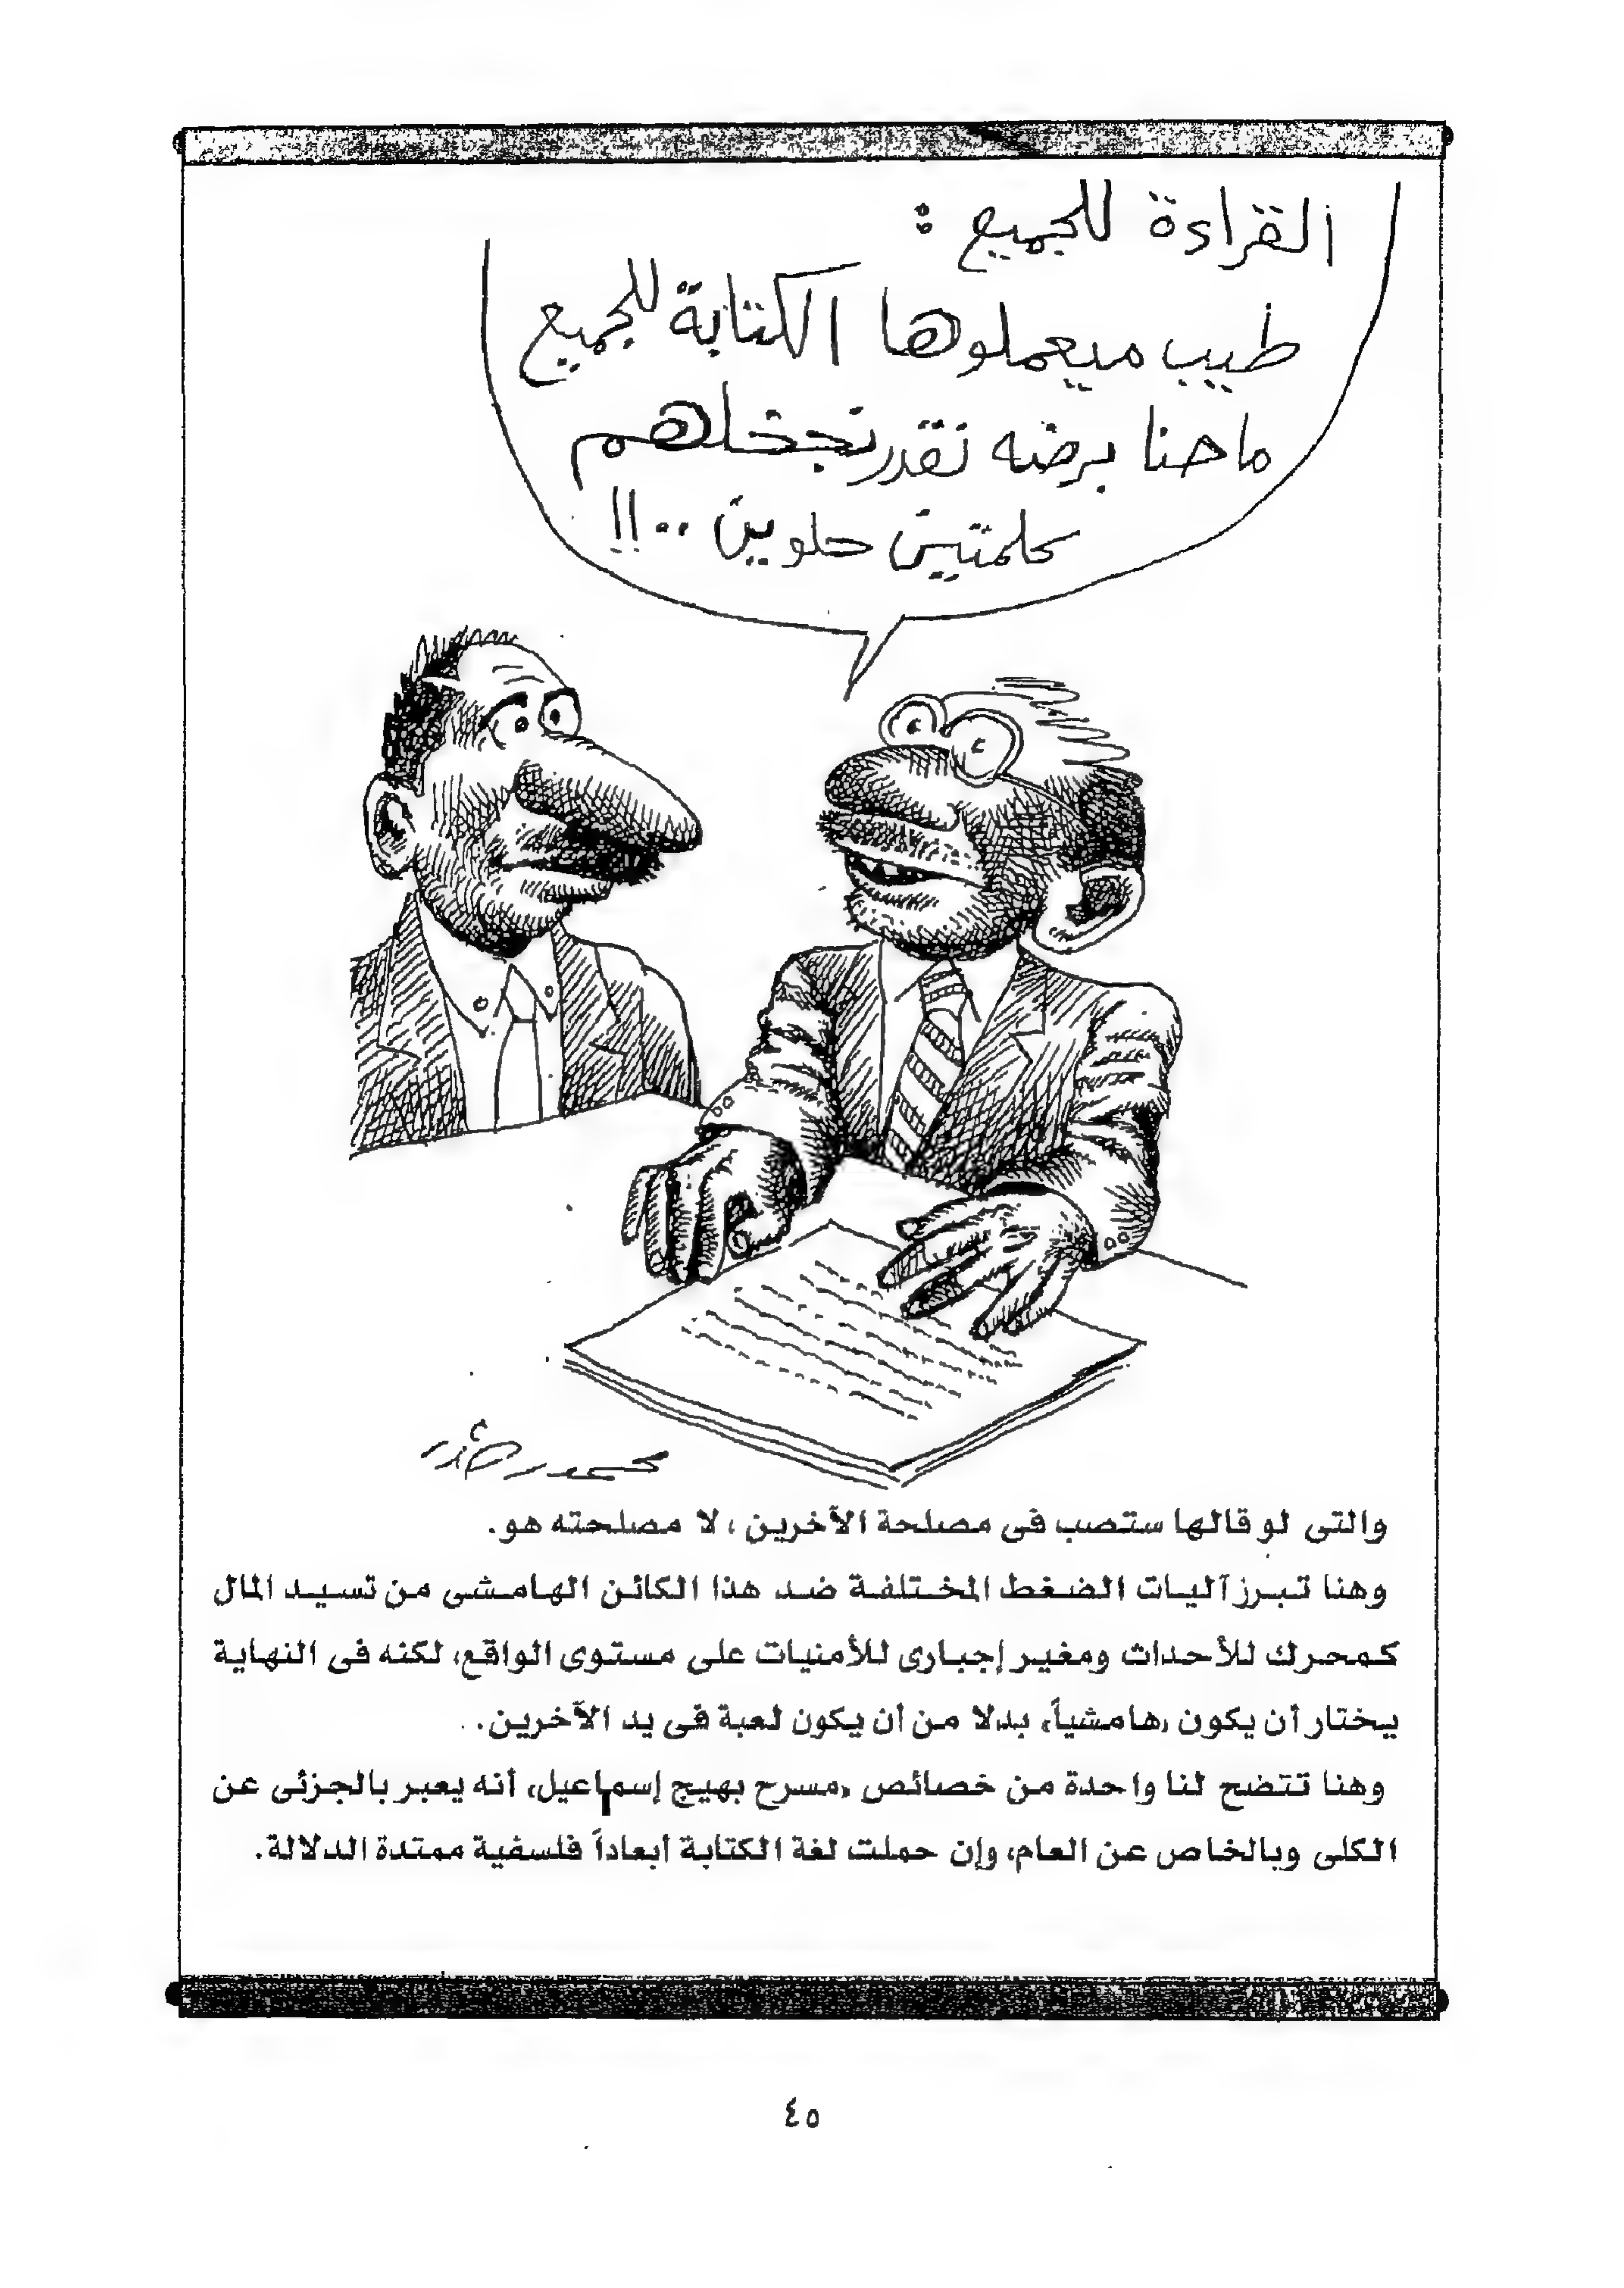 القراءة للجميع :
طيب ميعملوها الكتابة للجميع
ماحنا برضه نقدر نجخلهم
كلمتين حلوين ..!!
والتى لو قالها ستصب فى مصلحة الآخرين، لا مصلحته هو.
وهنا تبرز آليات الضغط المختلفة ضد هذا الكائن الهامشى من تسيد المال
كمحرك للأحداث ومغير إجبارى للأمنيات على مستوى الواقع، لكنه فى النهاية
يختار أن يكون «هامشياً» بدلا من أن يكون لعبة فى يد الآخرين.
وهنا تتضح لنا واحدة من خصائص «مسرح بهيج إسماعيل» أنه يعبر بالجزئى عن
الكلى وبالخاص عن العام، وإن حملت لغة الكتابة أبعاداً فلسفية ممتدة الدلالة.
٤٥